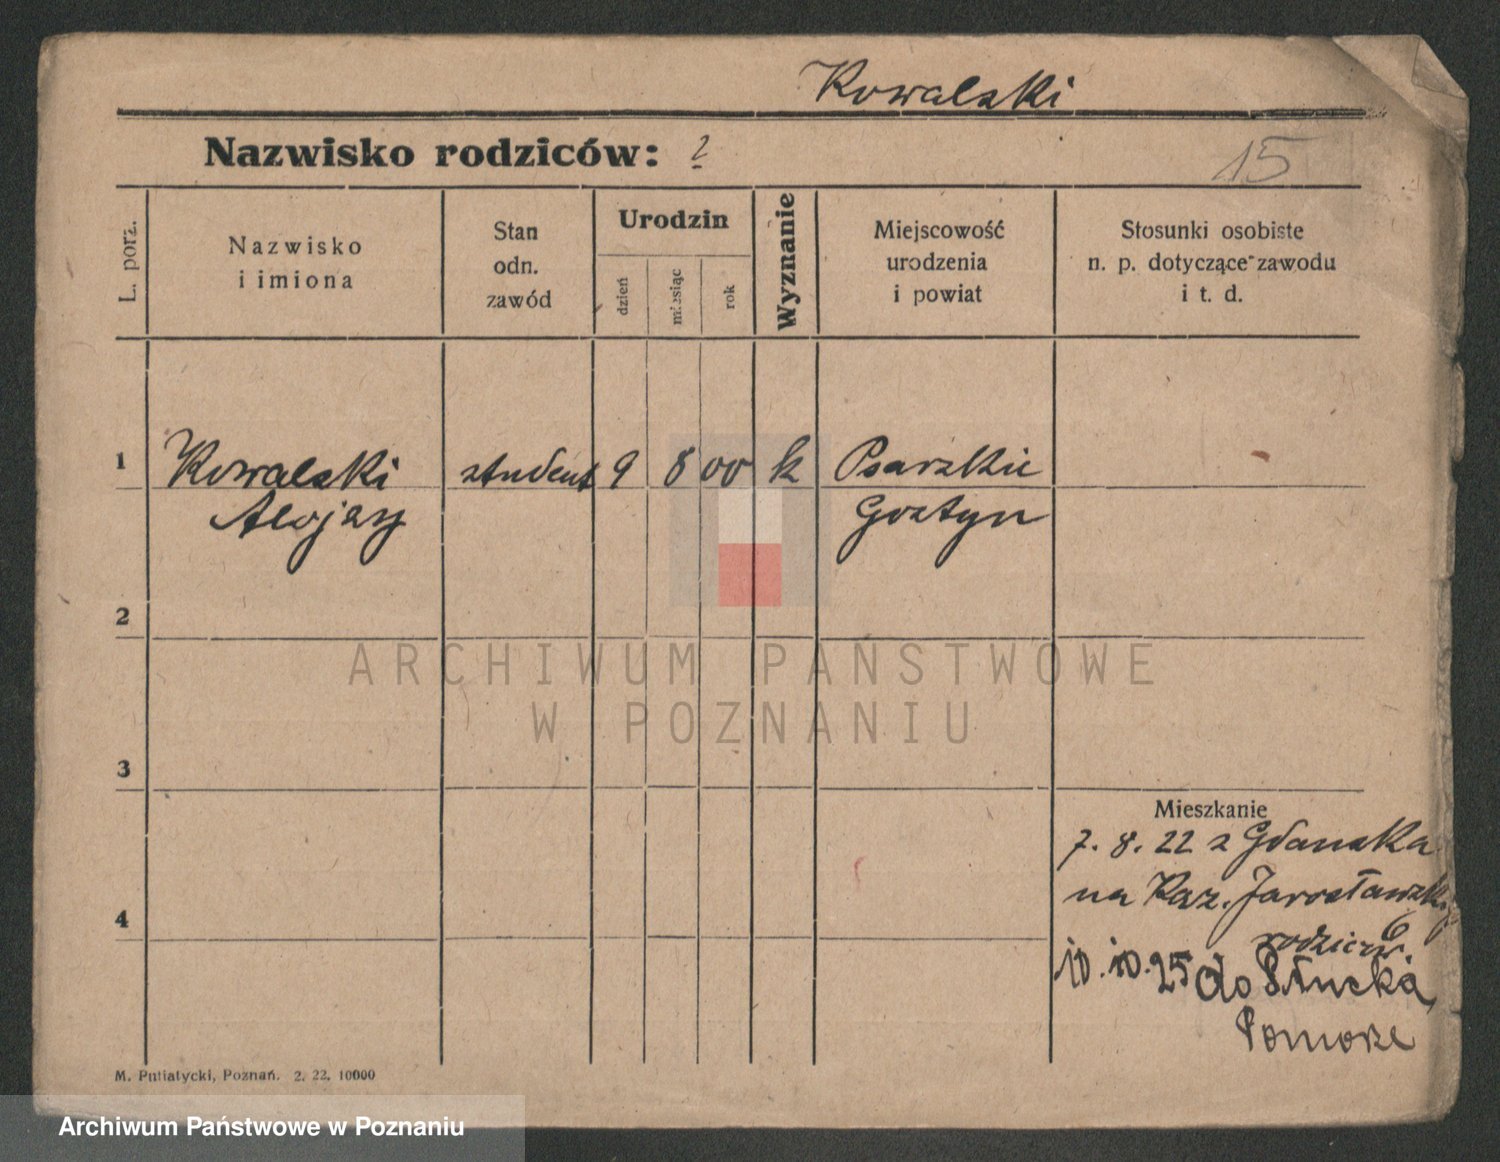 Kowalski
Nazwisko rodziców: ?
15
L. porz.
Nazwisko
i imiona
Stan
odn.
zawód
Urodzin
dzień
miesiąc
rok
Wyznanie
Miejscowość
urodzenia
i powiat
Stosunki osobiste
n. p. dotyczące zawodu
i t. d.
1
Kowalski
student
9
8
00
k
Psarskie
Alojzy
Gostyn
2
ARCHIWUM PAŃSTWOWE
W POZNANIU
3
Mieszkanie
7. 8. 22 z Gdanska
na Kaz. Jarosławsk
6
4
rodziców.
10.10.25 do
Pomorze
M. Putiatycki, Poznań. 2. 22. 10000
Archiwum Państwowe w Poznaniu